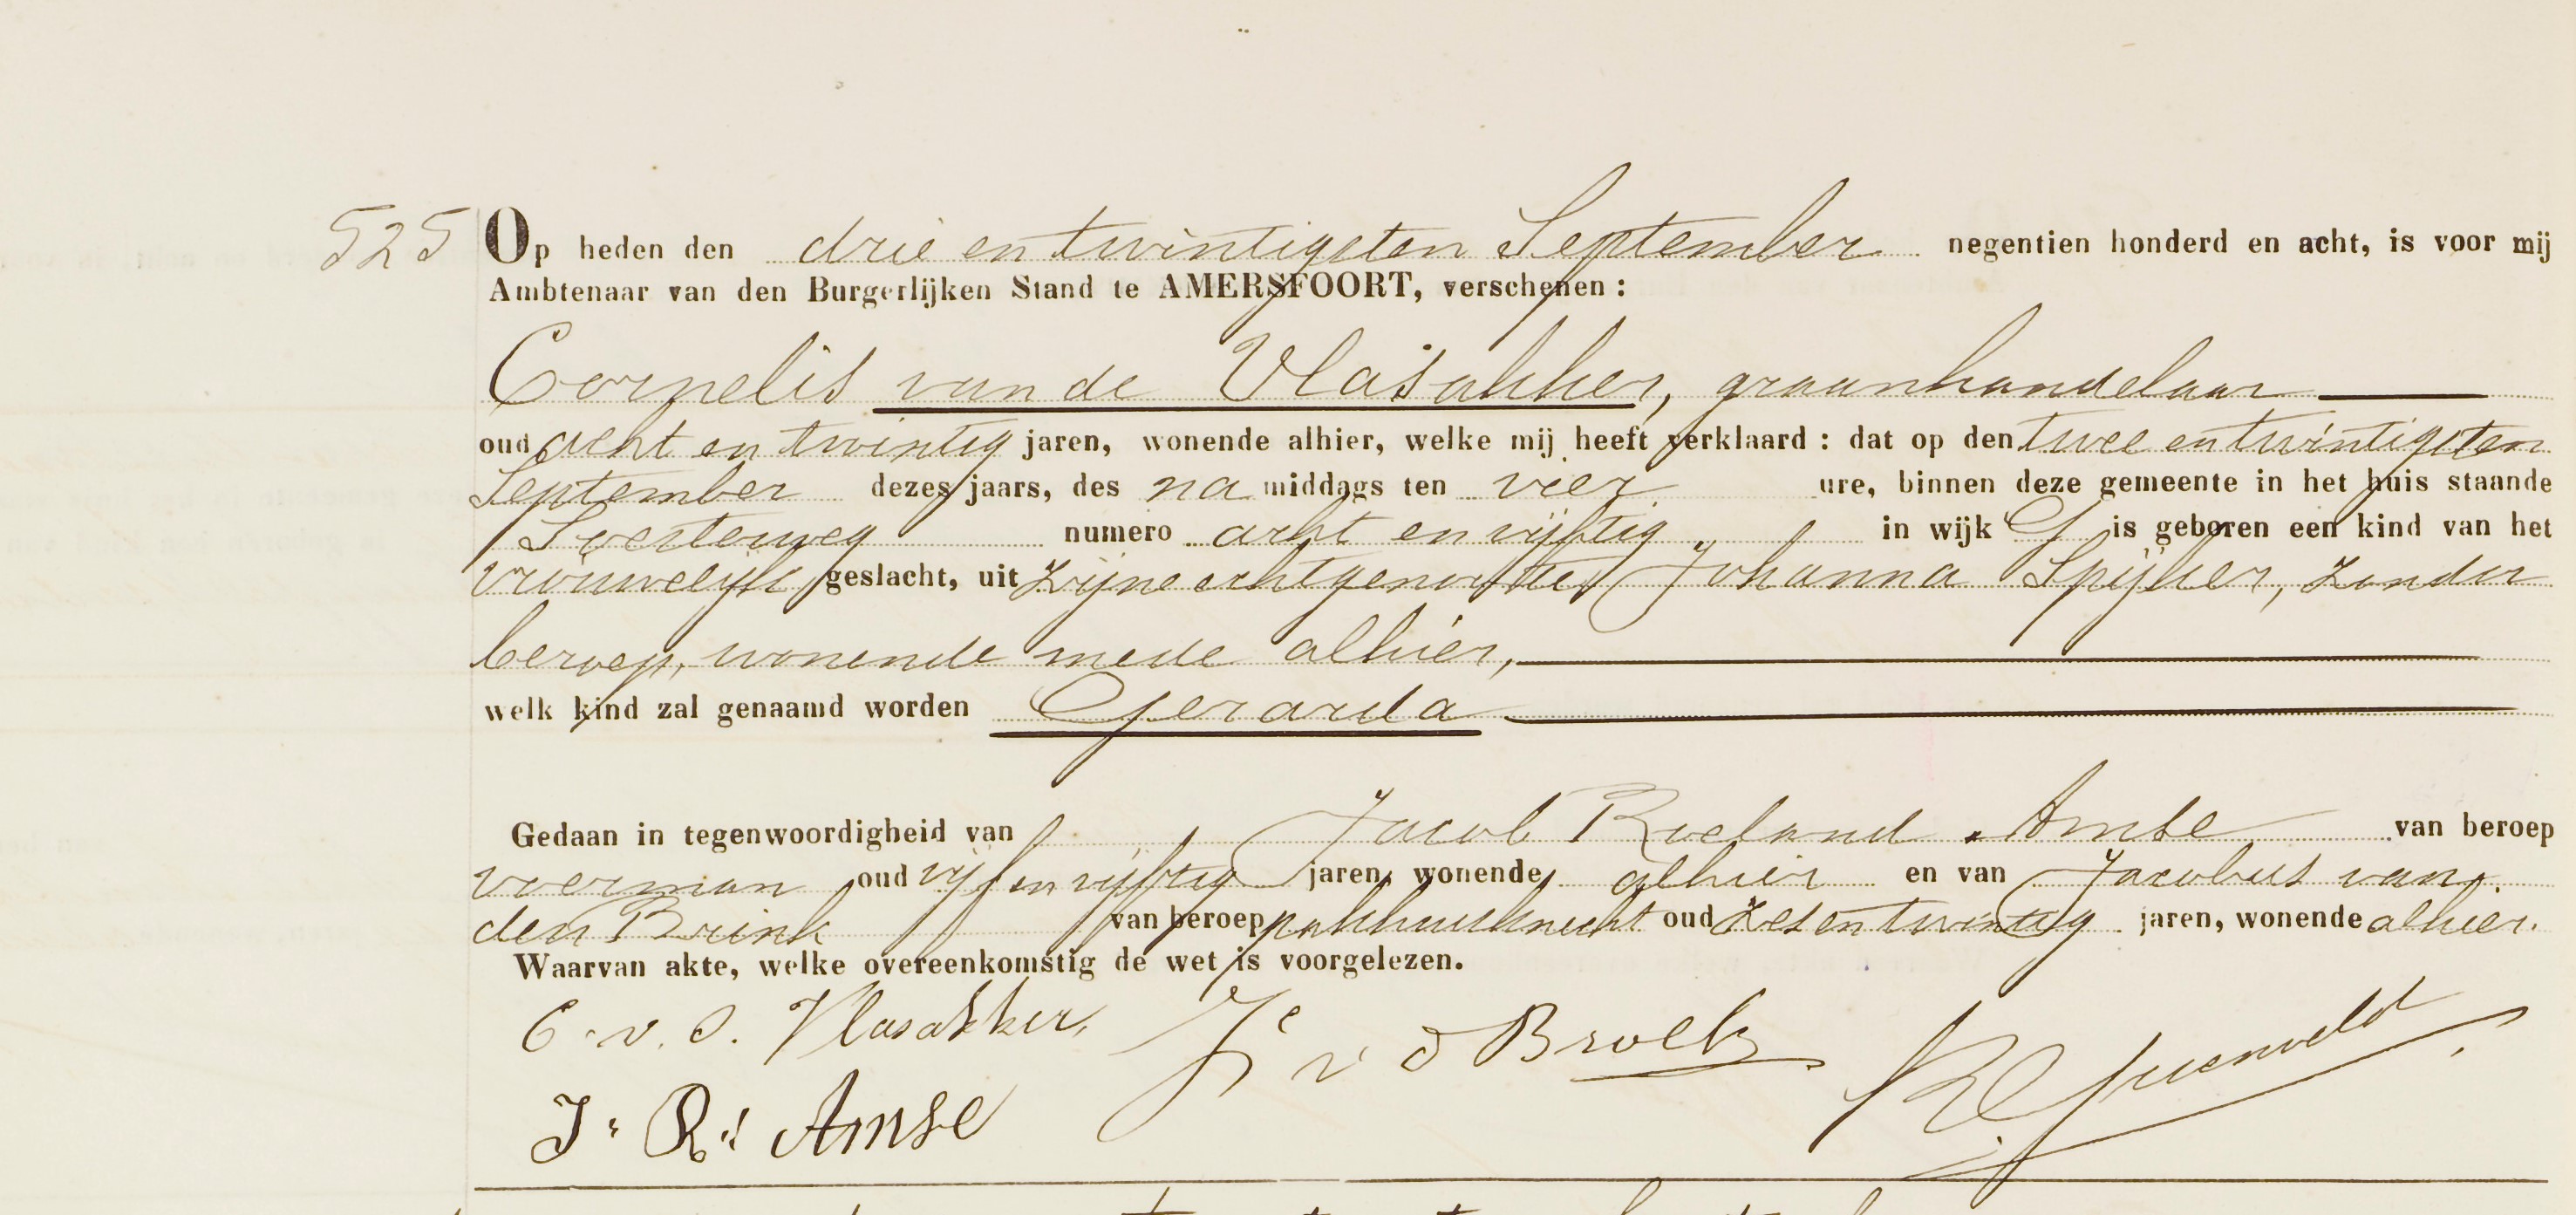 525 Op heden den drie en twintigsten September negentien honderd en acht, is voor mij
Ambtenaar van den Burgerlijken Stand te AMERSFOORT, verschenen :
Cornelis van de Vlasakker, graanhandelaar
oud acht en twintig jaren, wonende alhier, welke mij heeft verklaard : dat op den twee en twintigsten
September dezes jaars, des na middags ten vier ure, binnen deze gemeente in het huis staande
Soesterweg numero acht en vijftig in wijk G is geboren een kind van het
vrouwelijk geslacht, uit zijne echtgenoote, Johanna Spijker, zonder
beroep, wonende mede alhier,
welk kind zal genaamd worden Gerarda
Gedaan in tegenwoordigheid van Jacob Roeland Amse van beroep
voerman oud vijf en vijftig jaren, wonende alhier en van Jacobus van
den Brink van beroep pakhuisknecht oud zes en twintig jaren, wonende alhier.
Waarvan akte, welke overeenkomstig de wet is voorgelezen.
C. v. d. Vlasakker, Js v d Broek
J. R. Amse